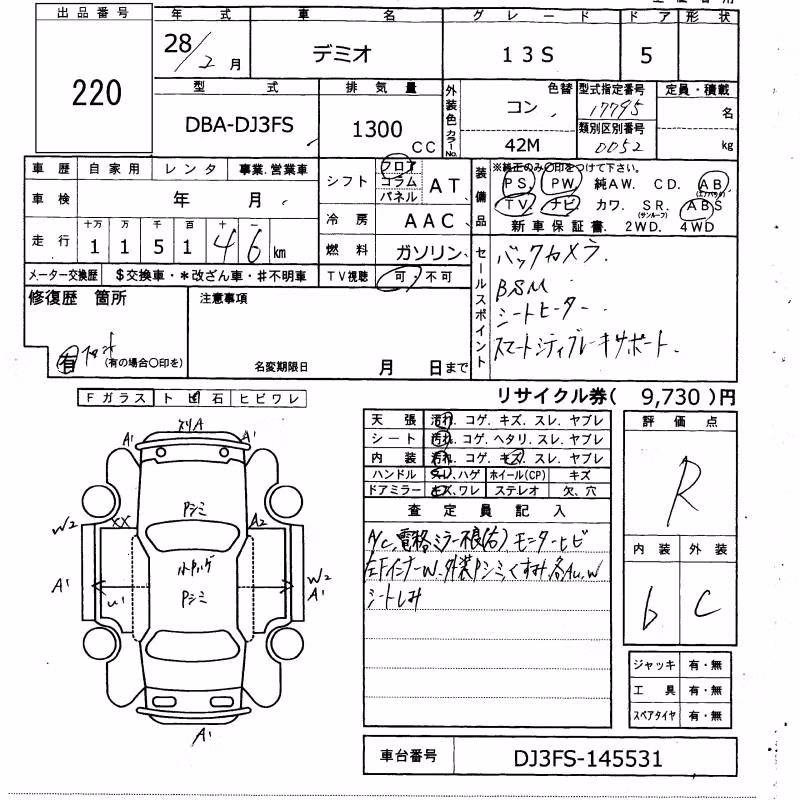 出品番号 年式 車名 グレード ドア形状
220 28/2月 デミオ 13S 5
型式 排気量 外装色 カラーNo. 色替 型式指定番号 定員・積載
DBA-DJ3FS 1300CC コン 17795 名
42M 類別区別番号 0052 kg
車歴 自家用 レンタ 事業.営業車
車検 年 月
走行 十万 万 千 百 十 一
1 1 5 1 4 6 km
メーター交換歴 $交換車・*改ざん車・#不明車
シフト フロア コラム パネル AT
冷房 AAC
燃料 ガソリン
TV視聴 可・不可
装備品 ※純正のみ〇印をつけて下さい。
PS. PW. 純AW. CD. AB (エアバック)
TV. ナビ. カワ. SR. (サンルーフ) ABS
新車保証書. 2WD. 4WD
セールスポイント
バックカメラ.
BSM
シートヒーター
スマートシティブレーキサポート.
修復歴 箇所 注意事項
有 (有の場合〇印を)
名変期限日 月 日まで
リサイクル券( 9,730 )円
Fガラス トビ石 ヒビワレ
天張 汚れ. コゲ. キズ. スレ. ヤブレ
シート 汚れ. コゲ. ヘタリ. スレ. ヤブレ
内装 汚れ. コゲ. キズ. スレ. ヤブレ
ハンドル スレ.ハゲ ホイール(CP) キズ
ドアミラー キズ.ワレ ステレオ 欠、穴
評価点
R
内装 外装
6 C
査定員記入
A/C 電格ミラー不良(右) モニターヒビ
左Fインナー W. 外装Pシミくすみ 各AU.W
シートしみ
スリA
A1 A1
Pシミ
W2 XX A2
ルーフ
A1 U1 Pシミ W2 A1
A1
ジャッキ 有・無
工具 有・無
スペアタイヤ 有・無
車台番号 DJ3FS-145531